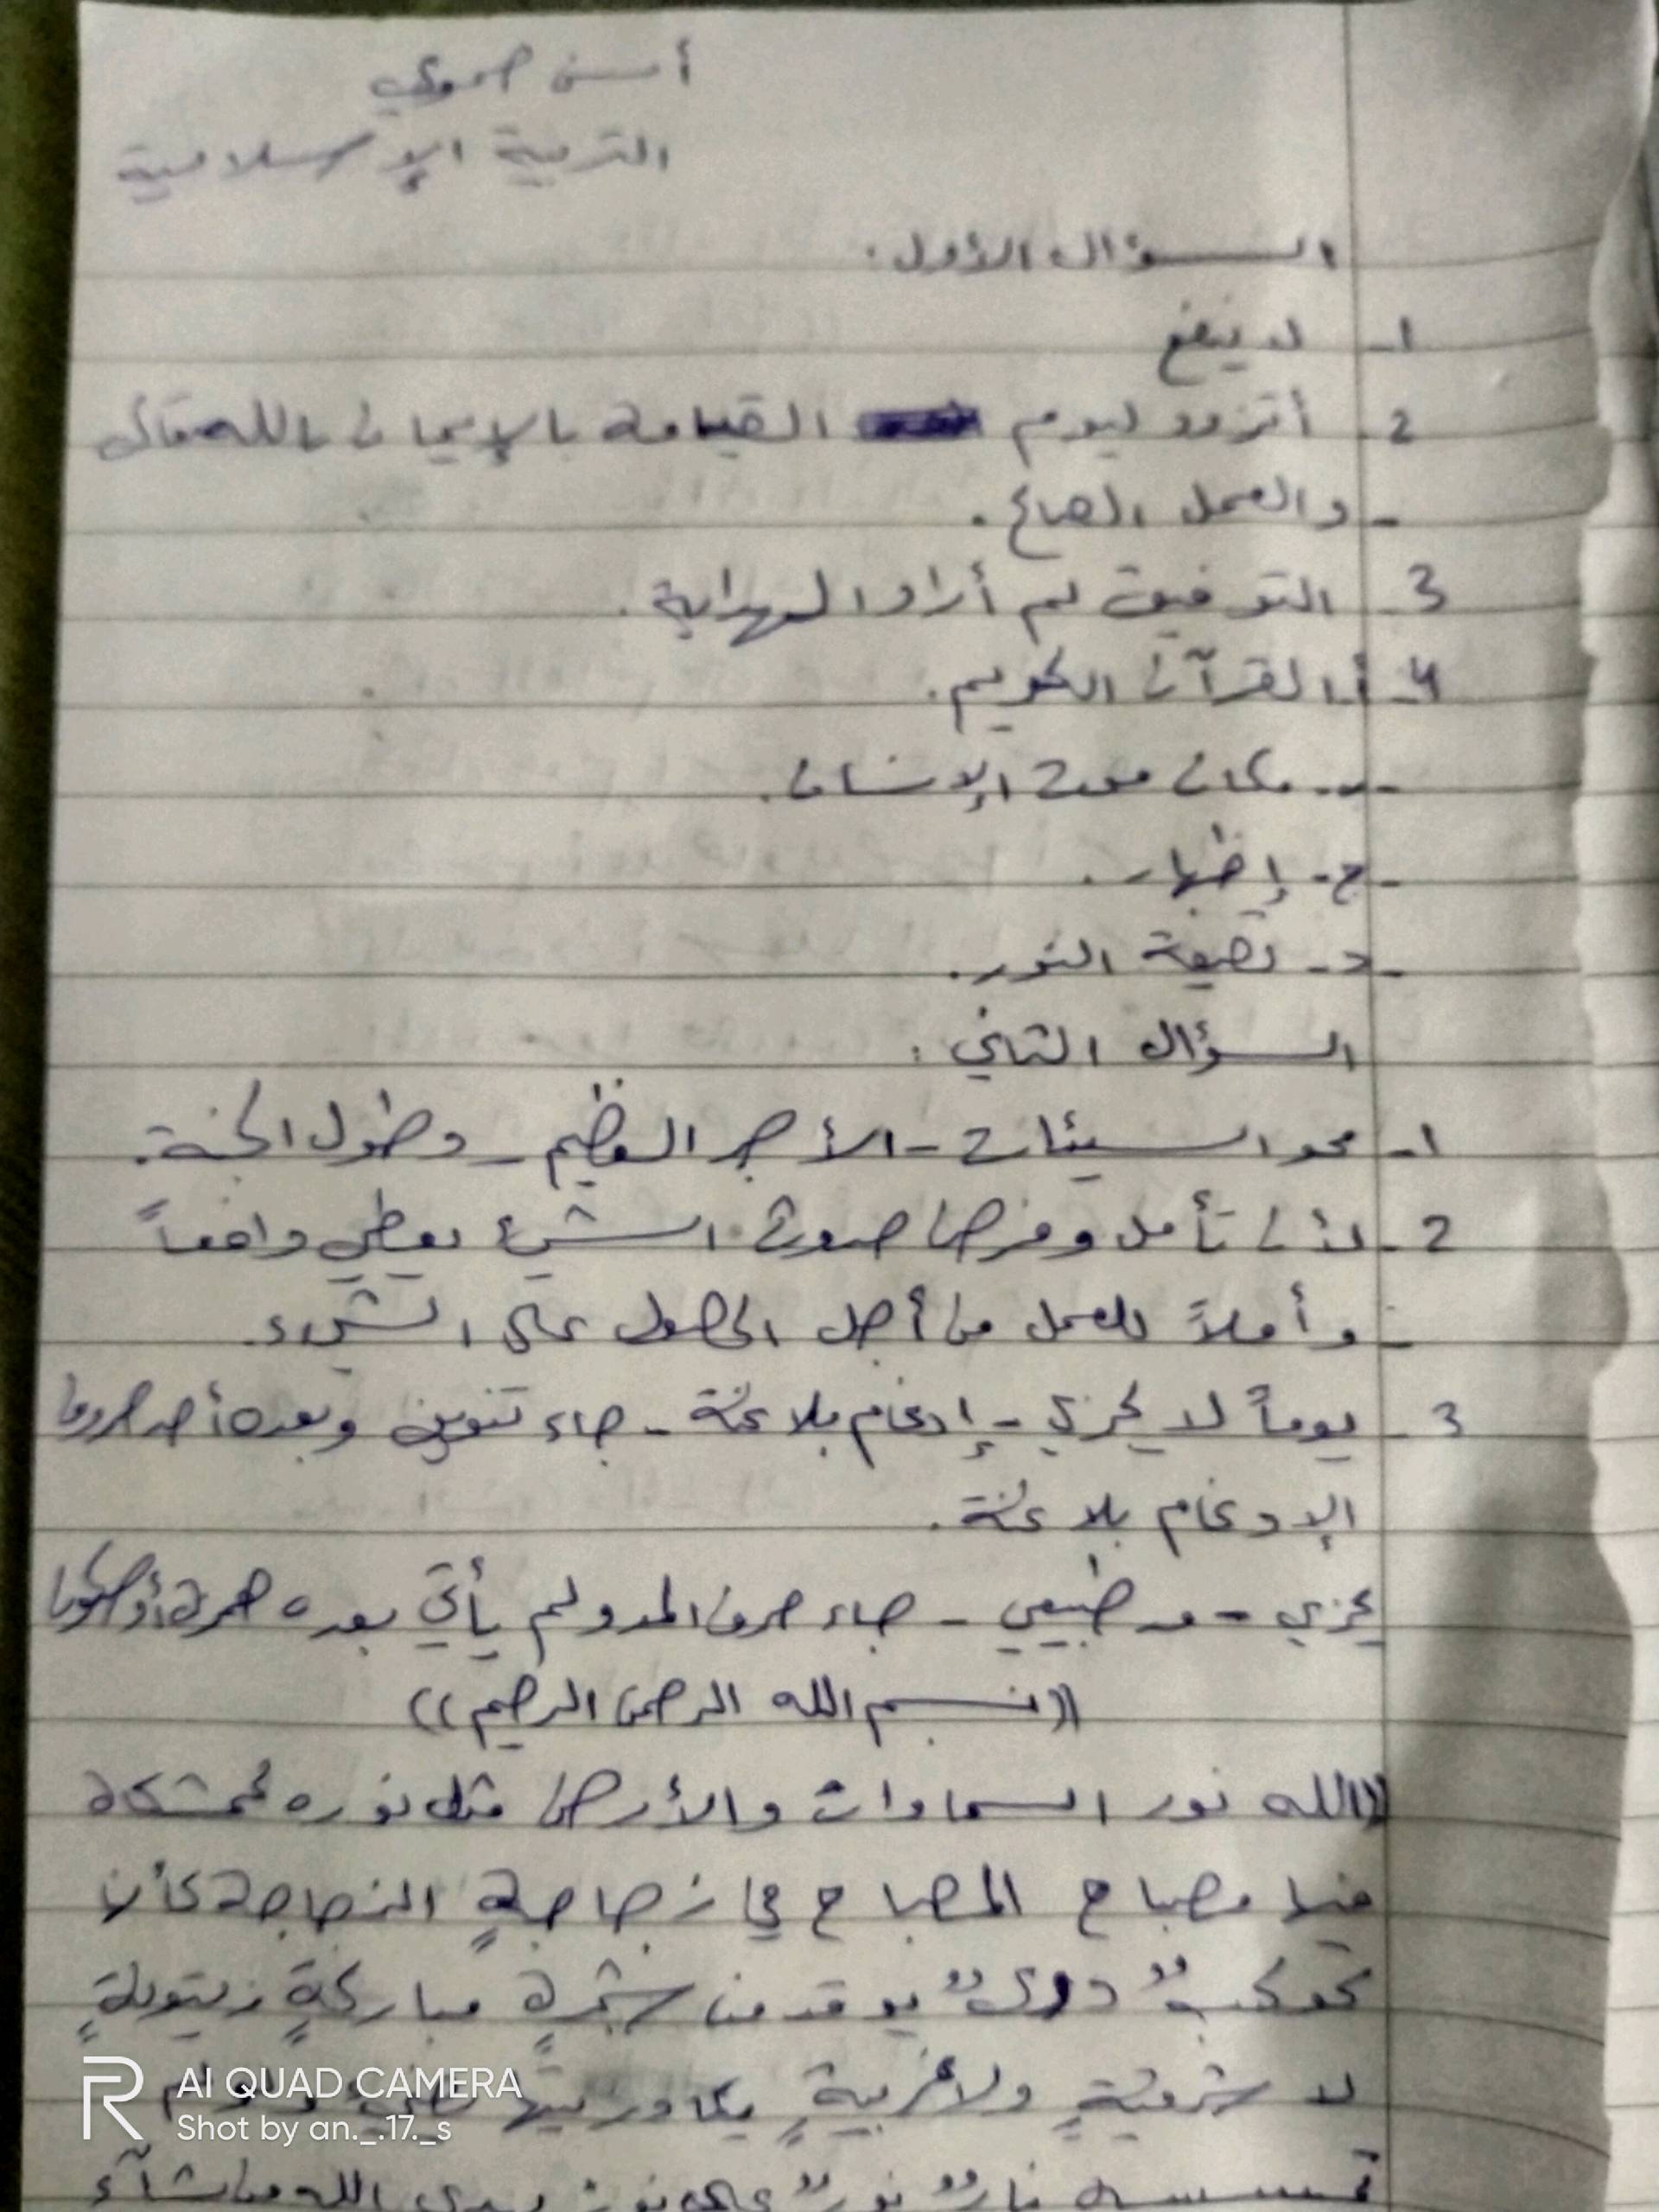 أنس حموي
التربية الإسلامية
السؤال الأول:
1- لا ينفع
2- أتزود ليوم القيامة بالإيمان بالله تعالى
- والعمل الصالح.
3- التوفيق لم أراد الهداية.
4- أ. القرآن الكريم.
- ب- مكان موت الإنسان.
- ج- إظهار.
- د- نصيعة النور.
السؤال الثاني:
1- محو السيئات - الأجر العظيم - دخول الجنة.
2- لأن تأمل وفرض صورة الشيء يعطي دافعاً
- وأملاً للعمل من أجل الحصول على الشيء.
3- يوماً لا يجزي - إدغام بلا غنة - جاء تنوين وبعده أحد حروف
الإدغام بلا غنة.
يجزي - مد طبيعي - جاء حرف المد ولم يأتي بعده همزة أو سكون
((بسم الله الرحمن الرحيم))
((الله نور السماوات والأرض مثل نوره كمشكاة
فيها مصباح المصباح في زجاجةٍ الزجاجة كأنها
كوكبٌ دريٌ يوقد من شجرةٍ مباركةٍ زيتونةٍ
لا شرقيةٍ ولا غربيةٍ يكاد زيتها يضيء ولو لم
تمسسه نارٌ نورٌ على نور يهدي الله من يشآء
AI QUAD CAMERA
Shot by an._.17._s